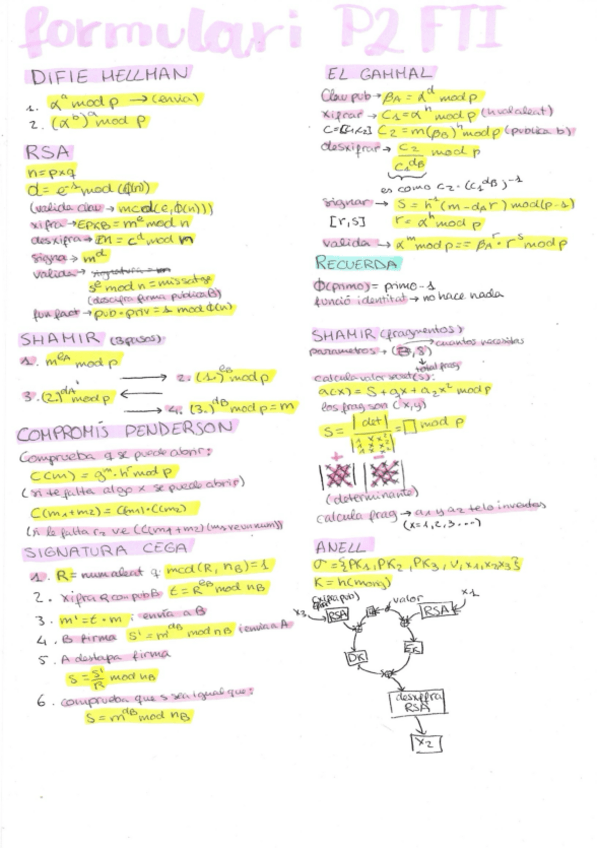 formulari P2 FTI
DIFIE HELLMAN
1. α^a mod p → (envia)
2. (α^b)^a mod p
RSA
n = p×q
d = e^-1 mod (Φ(n))
(valida clau → mcd(e, Φ(n)))
xifra → EPKB = m^e mod n
desxifra → m = c^d mod n
signa → m^d
valida →
s^e mod n = missatge
(descifra firma publica B)
fun fact → pub · priv = 1 mod Φ(n)
SHAMIR (3 pasos)
1. m^eA mod p
→ 2. (1.)^eB mod p
3. (2.)^dA mod p ←
→ 4. (3.)^dB mod p = m
COMPROMÍS PENDERSON
Comprueba q se puede abrir:
C(m) = g^m · h^r mod p
(si te falta algo x se puede abrir)
C(m1+m2) = C(m1) · C(m2)
SIGNATURA CEGA
1. R = num aleat q mcd(R, nB) = 1
2. xifra R con pub B t = R^eB mod nB
3. m' = t · m i envia a B
4. B firma s' = m'^dB mod nB i envia a A
5. A destapa firma
s = s'/R mod nB
6. comprueba que s sea igual que:
s = m^dB mod nB
EL GAMMAL
Clau pub → βA = α^d mod p
xifrar → C1 = α^h mod p (h valaleat)
C=[C1,C2] C2 = m(βB)^h mod p (publica b)
desxifrar → C2/C1^dB mod p
es como C2 · (C1^dB)^-1
signar → s = h^-1 (m - dA r) mod (p-1)
[r,s] r = α^h mod p
valida → α^m mod p == βA^r · r^s mod p
RECUERDA
Φ(primo) = primo - 1
funció identitat → no hace nada
SHAMIR (fragmentos)
cuantos necesitas
parametros +
total frag
calcula valor secret (s):
a(x) = S + a1x + a2x² mod p
los frag son (x,y)
S = |det| / |1 x x²| = □ mod p
+ -
(determinante)
calcula frag → a1 y a2 te lo inventas
(x=1,2,3...)
ANELL
σ = {PK1, PK2, PK3, v, x1, x2, x3}
K = h(msg)
(xifra pub)
x3
RSA
valor
RSA
x1
DK
EK
desxifra
RSA
x2